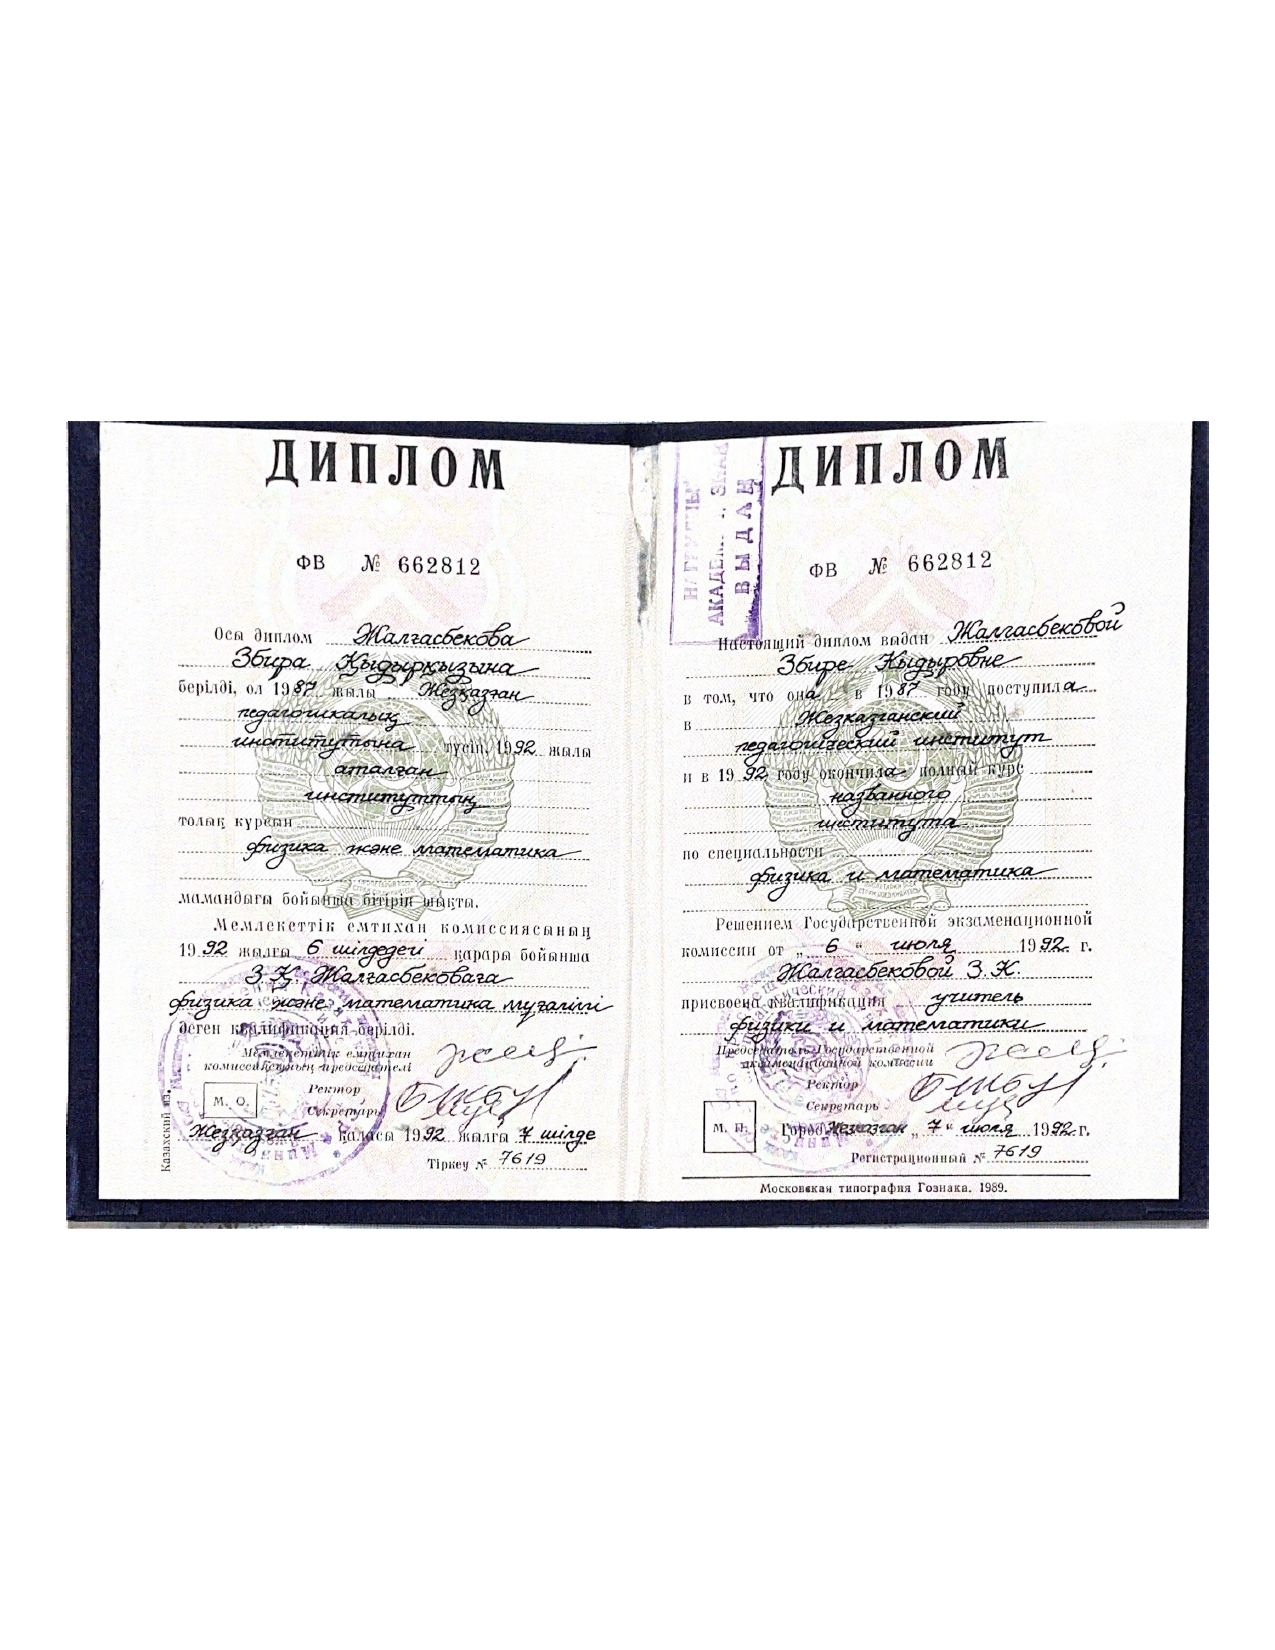 ДИПЛОМ
ФВ № 662812
Осы диплом Жалғасбекова
Збира Қыдырқызына
берілді, ол 1987 жылы Жезқазған
педагогикалық
институтына түсіп, 1992 жылы
аталған
институттың
толық курсын
физика және математика
мамандығы бойынша бітіріп шықты.
Мемлекеттік емтихан комиссиясының
1992 жылғы 6 шілдедегі қарары бойынша
З.Қ. Жалғасбековаға
физика және математика мұғалімі
деген квалификация берілді.
Мемлекеттік емтихан
комиссиясының председателі
Ректор
М. О.
Секретарь
Жезқазған қаласы 1992 жылғы 7 шілде
Тіркеу № 7619
Казахский яз.
ДИПЛОМ
ВЫДАН
ФВ № 662812
Настоящий диплом выдан Жалгасбековой
Збире Кыдыровне
в том, что она в 1987 году поступила
в Жезказганский
педагогический институт
и в 1992 году окончила полный курс
названного
института
по специальности
физика и математика
Решением Государственной экзаменационной
комиссии от „ 6 “ июля 1992 г.
Жалгасбековой З.К.
присвоена квалификация учитель
физики и математики
Председатель Государственной
экзаменационной комиссии
Ректор
Секретарь
М. П.
Город Жезказган „ 7 “ июля 1992 г.
Регистрационный № 7619
Московская типография Гознака. 1989.